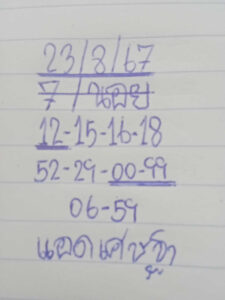 23/8/67
7/นอย
12-15-16-18
52-29-00-99
06-59
แอดเศรษฐา